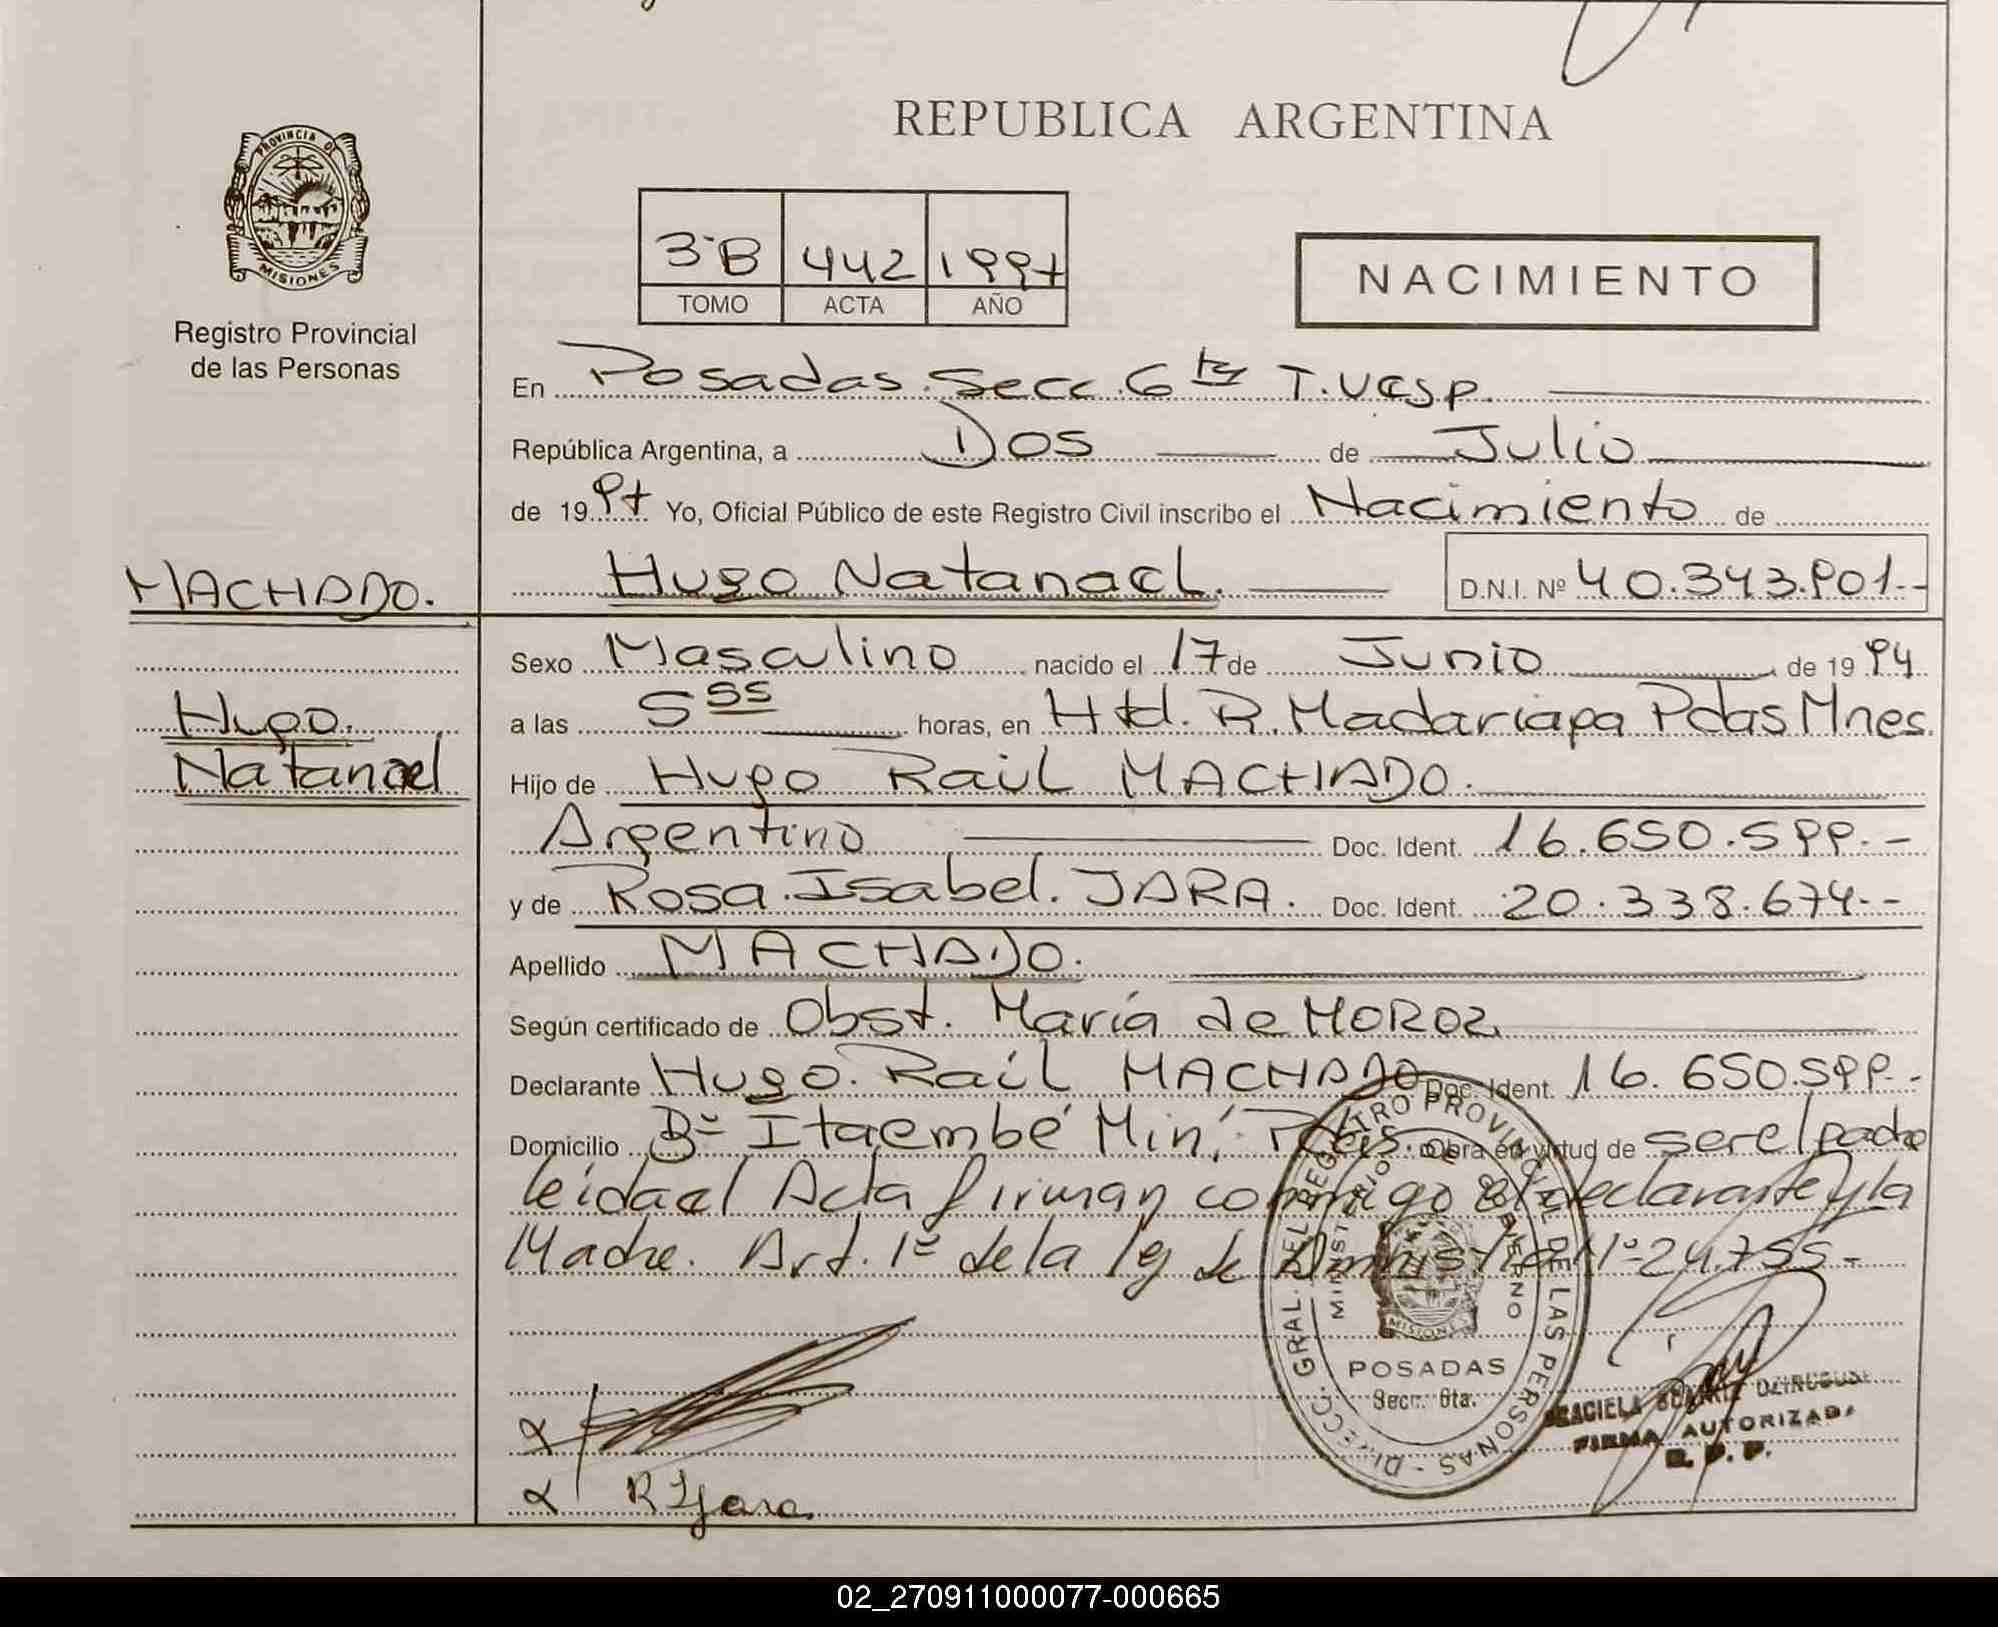 REPUBLICA ARGENTINA
PROVINCIA DE
MISIONES
Registro Provincial
de las Personas
3ºB 442 1997
TOMO ACTA AÑO
NACIMIENTO
En Posadas. Secc. 6ta T. Vesp.
República Argentina, a Dos de Julio
de 1997 Yo, Oficial Público de este Registro Civil inscribo el Nacimiento de
MACHADO.
Hugo Natanael. D.N.I. Nº 40.343.901.-
Sexo Masculino nacido el 17 de Junio de 1994
Hugo.
Natanael
a las 5 55 horas, en Htal. R. Madariaga Pdas Mnes.
Hijo de Hugo Raúl MACHADO.
Argentino Doc. Ident. 16.650.599.-
y de Rosa Isabel. JARA. Doc. Ident. 20.338.674.-
Apellido MACHADO.
Según certificado de Obst. María de MOROZ
Declarante Hugo. Raúl MACHADO Doc. Ident. 16.650.599.-
Domicilio Bº Itaembé Miní, Pdas. Obra en virtud de ser el padre
leida el Acta firman conmigo el declarante y la
Madre. Art. 1º de la ley de Amnistia Nº 24.755-
DIRECC. GRAL. DEL REGISTRO PROVINCIAL DE LAS PERSONAS
MINISTERIO DE GOBIERNO
MISIONES
POSADAS
Secc. 6ta.
GRACIELA
FIRMA AUTORIZADA
R. P. P.
R I Jara
02_270911000077-000665